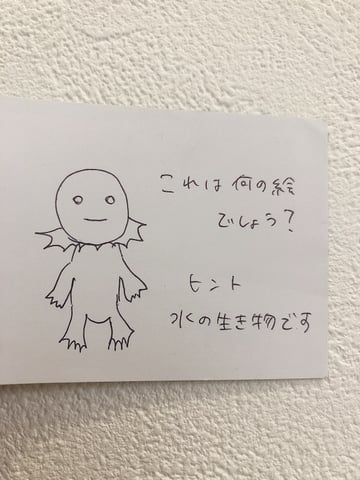 これは何の絵
でしょう？
ヒント
水の生き物です